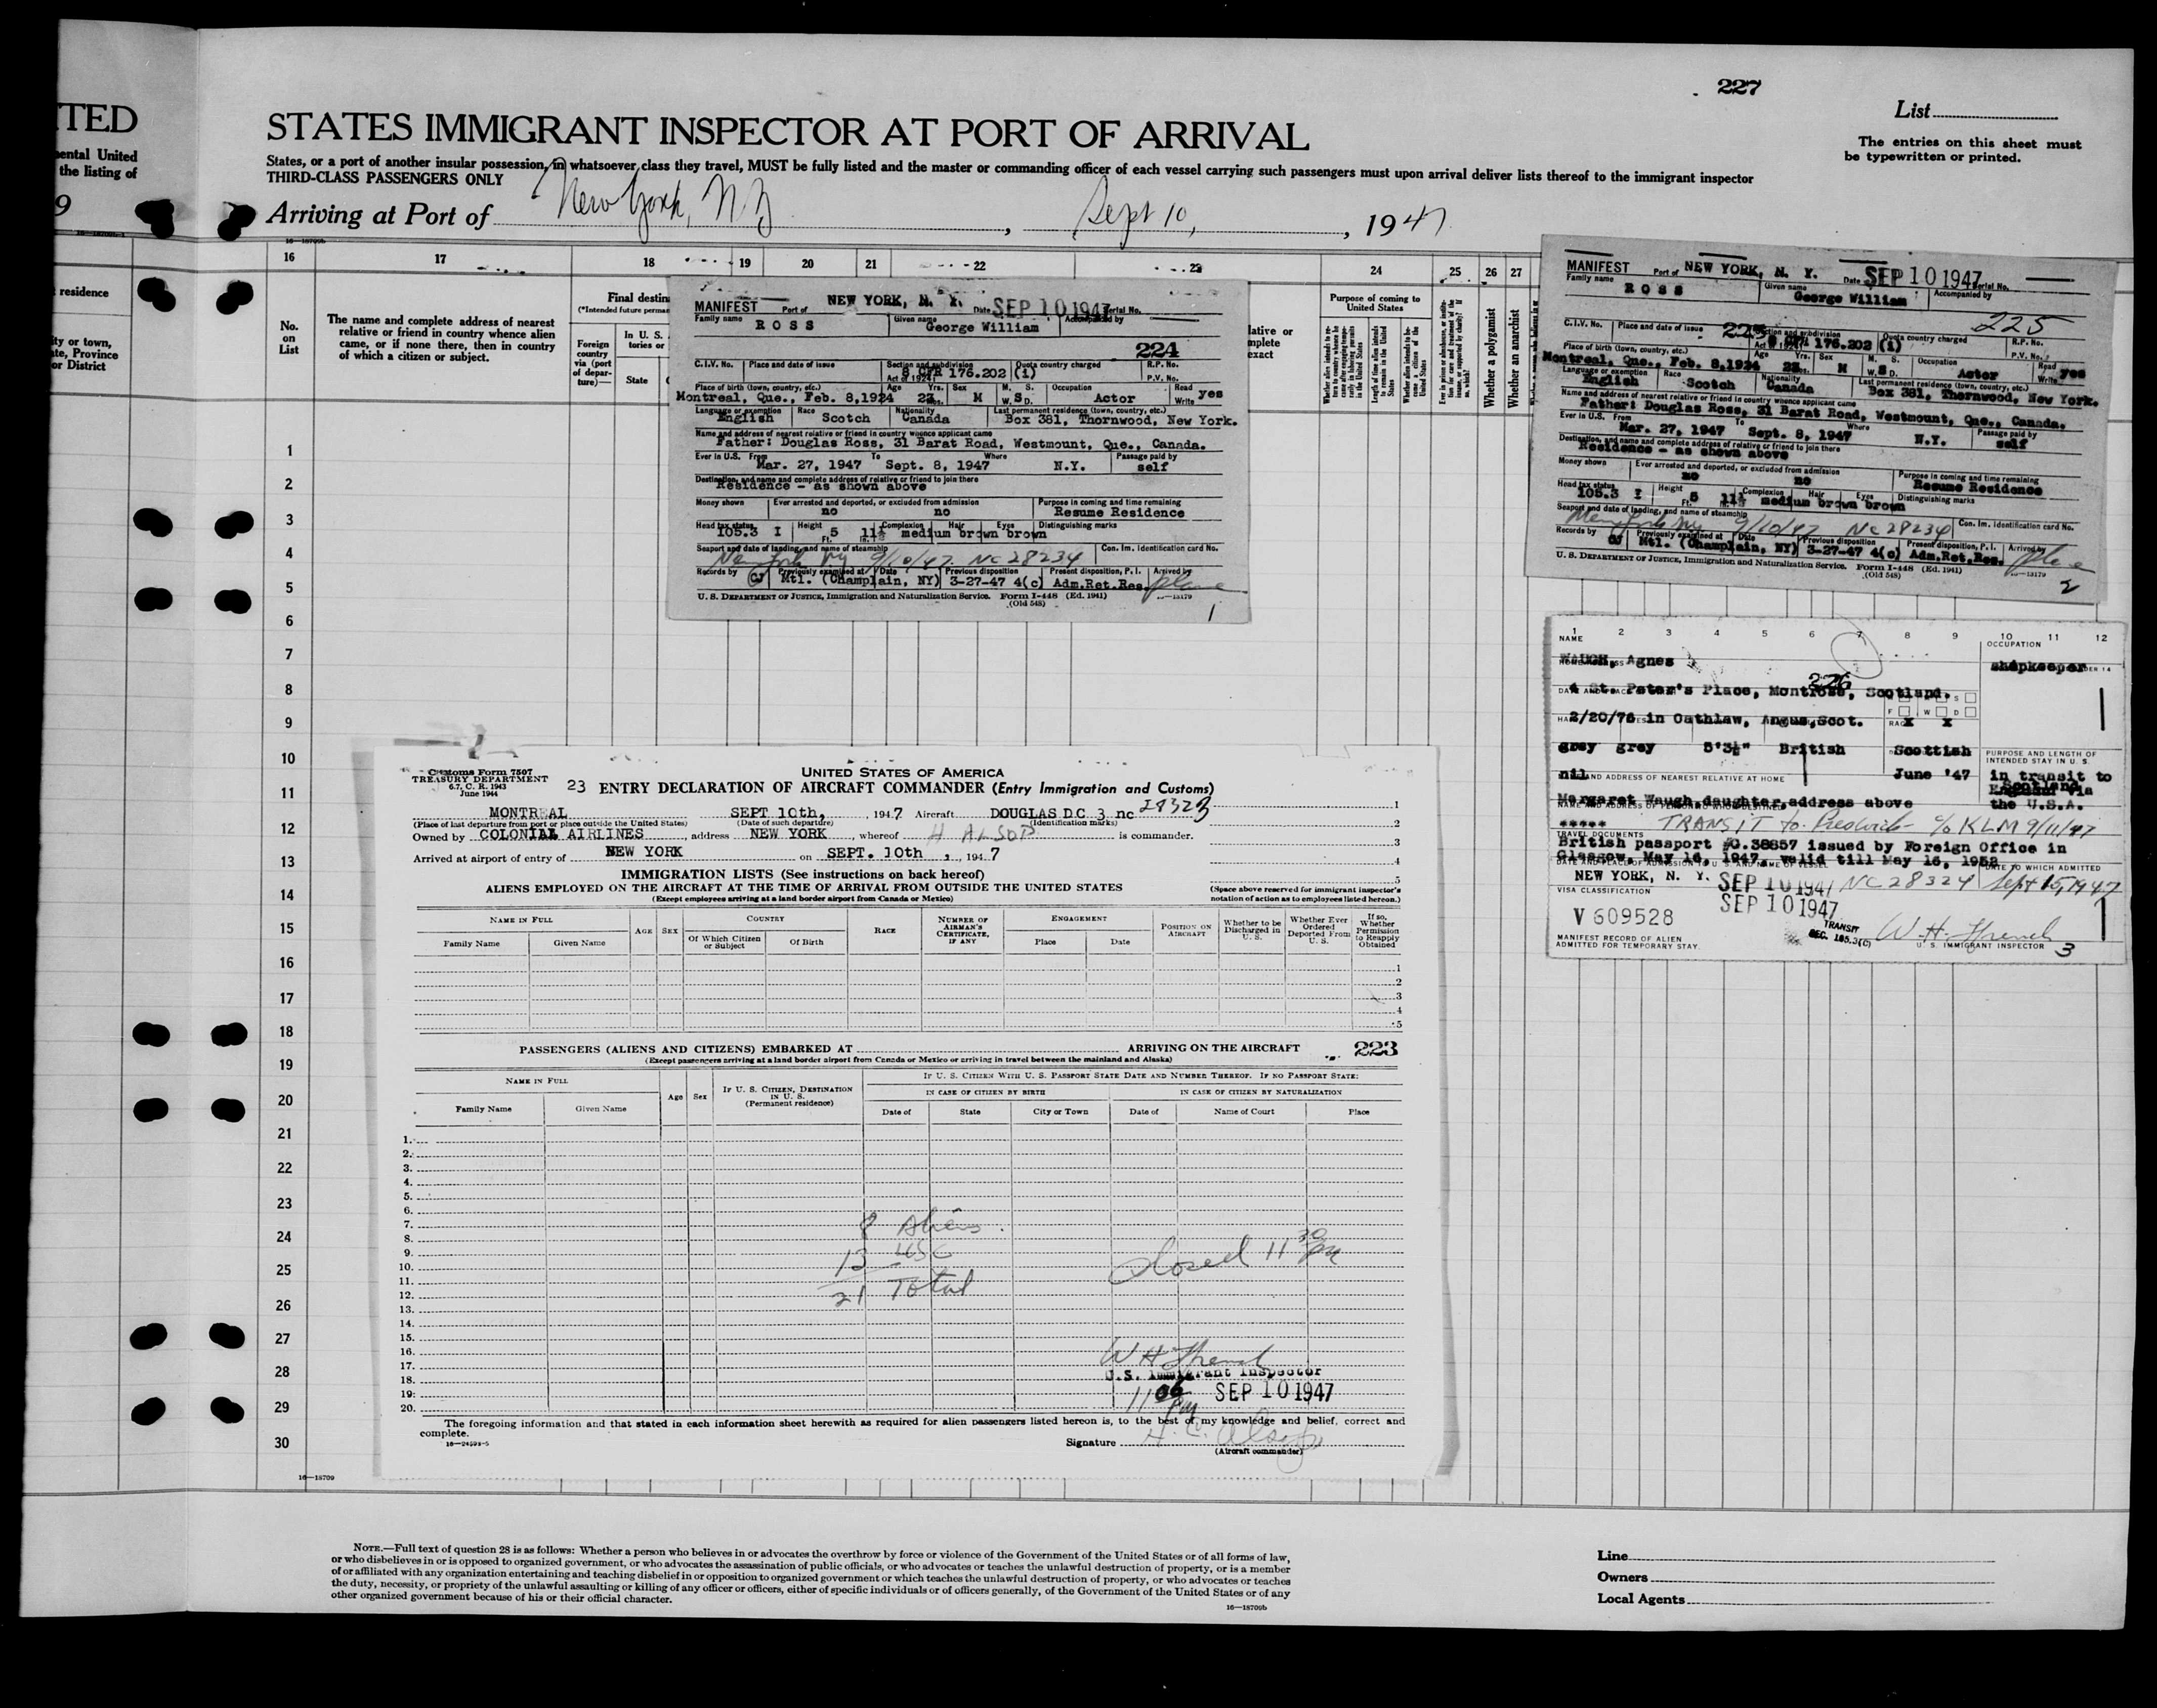 227
List
ITED
STATES IMMIGRANT INSPECTOR AT PORT OF ARRIVAL
The entries on this sheet must
be typewritten or printed.
ental United
the listing of
States, or a port of another insular possession, in whatsoever class they travel, MUST be fully listed and the master or commanding officer of each vessel carrying such passengers must upon arrival deliver lists thereof to the immigrant inspector
THIRD-CLASS PASSENGERS ONLY
9
Arriving at Port of New York, NY, Sept 10, 1947
16 17 18 19 20 21 22 23 24 25 26 27
residence
ty or town,
te, Province
or District
No.
on
List
The name and complete address of nearest
relative or friend in country whence alien
came, or if none there, then in country
of which a citizen or subject.
Final destin
(*Intended future perman
Foreign
country
via (port
of depar-
ture)—
In U. S.
tories or
State
lative or
mplete
exact
Purpose of coming to
United States
Whether a polygamist
Whether an anarchist
1
2
3
4
5
6
7
8
9
10
11
12
13
14
15
16
17
18
19
20
21
22
23
24
25
26
27
28
29
30
MANIFEST Port of NEW YORK, N. Y. Date SEP 10 1947 Serial No.
Family name ROSS Given name George William Accompanied by
224
C.I.V. No. Place and date of issue Section and subdivision Act of 1924 8 CFR 176.202 (i) Quota country charged R.P. No.
P.V. No.
Place of birth (town, country, etc.) Age Yrs. Sex M. S. Occupation Read
Montreal, Que., Feb. 8, 1924 23 Mos. M W. S D. Actor Write yes
Language or exemption Race Nationality Last permanent residence (town, country, etc.)
English Scotch Canada Box 381, Thornwood, New York.
Name and address of nearest relative or friend in country whence applicant came
Father: Douglas Ross, 31 Barat Road, Westmount, Que., Canada.
Ever in U.S. From To Where Passage paid by
Mar. 27, 1947 Sept. 8, 1947 N.Y. self
Destination, and name and complete address of relative or friend to join there
Residence - as shown above
Money shown Ever arrested and deported, or excluded from admission Purpose in coming and time remaining
no no Resume Residence
Head tax status Height Complexion Hair Eyes Distinguishing marks
105.3 I Ft. 5 In. 11½ medium brown brown
Seaport and date of landing, and name of steamship Con. Im. Identification card No.
New York NY 9/10/47 NC 28234
Records by Previously examined at Date Previous disposition Present disposition, P. I. Arrived by
CJ Mtl. (Champlain, NY) 3-27-47 4(c) Adm.Ret.Res. plane
U. S. DEPARTMENT OF JUSTICE, Immigration and Naturalization Service. Form I-448 (Ed. 1941)
(Old 548) 16—13179
1
MANIFEST Port of NEW YORK, N. Y. Date SEP 10 1947 Serial No.
Family name ROSS Given name George William Accompanied by
225
C.I.V. No. Place and date of issue 225 Section and subdivision Act of 1924 8 CFR 176.202 (i) Quota country charged R.P. No.
P.V. No.
Place of birth (town, country, etc.) Age Yrs. Sex M. S. Occupation Read
Montreal, Que., Feb. 8, 1924 23 Mos. M W. S D. Actor Write yes
Language or exemption Race Nationality Last permanent residence (town, country, etc.)
English Scotch Canada Box 381, Thornwood, New York.
Name and address of nearest relative or friend in country whence applicant came
Father: Douglas Ross, 31 Barat Road, Westmount, Que., Canada.
Ever in U.S. From To Where Passage paid by
Mar. 27, 1947 Sept. 8, 1947 N.Y. self
Destination, and name and complete address of relative or friend to join there
Residence - as shown above
Money shown Ever arrested and deported, or excluded from admission Purpose in coming and time remaining
no no Resume Residence
Head tax status Height Complexion Hair Eyes Distinguishing marks
105.3 I Ft. 5 11½ medium brown brown
Seaport and date of landing, and name of steamship Con. Im. Identification card No.
New York NY 9/10/47 NC 28234
Records by Previously examined at Date Previous disposition Present disposition, P. I. Arrived by
CJ Mtl. (Champlain, NY) 3-27-47 4(c) Adm.Ret.Res. plane
U. S. DEPARTMENT OF JUSTICE, Immigration and Naturalization Service. Form I-448 (Ed. 1941)
(Old 548) 16—13179
2
1 2 3 4 5 6 7 8 9 10 11 12
NAME OCCUPATION
WAUGH, Agnes shopkeeper
226
4 St. Peter's Place, Montrose, Scotland.
2/20/76 in Oathlaw, Angus, Scot. X X
F W D S
grey grey 5'3½" British Scottish
PURPOSE AND LENGTH OF
INTENDED STAY IN U. S.
nil June '47 in transit to
NAME AND ADDRESS OF NEAREST RELATIVE AT HOME
Scotland
England via
Margaret Waugh, daughter, address above the U.S.A.
***** TRANSIT to Prestwick - c/o KLM 9/11/47
TRAVEL DOCUMENTS
British passport #0.38857 issued by Foreign Office in
Glasgow, May 16, 1947, valid till May 16, 1952
DATE AND PLACE OF ADMISSION TO U. S. AND NAME OF VESSEL DATE TO WHICH ADMITTED
NEW YORK, N. Y. SEP 10 1947 NC 28324 Sept 15, 1947
VISA CLASSIFICATION
SEP 10 1947
V 609528
TRANSIT
SEC. 165.3(C)
W. H. French
MANIFEST RECORD OF ALIEN
ADMITTED FOR TEMPORARY STAY. U. S. IMMIGRANT INSPECTOR 3
Customs Form 7507
TREASURY DEPARTMENT
6.7, C. R. 1943
June 1944
UNITED STATES OF AMERICA
23 ENTRY DECLARATION OF AIRCRAFT COMMANDER (Entry Immigration and Customs)
MONTREAL SEPT 10th, , 1947 Aircraft DOUGLAS DC 3 nc 28323
(Place of last departure from port or place outside the United States) (Date of such departure) (Identification marks)
Owned by COLONIAL AIRLINES, address NEW YORK, whereof H ALSOP is commander.
Arrived at airport of entry of NEW YORK on SEPT. 10th, 1947
1
2
3
4
5
IMMIGRATION LISTS (See instructions on back hereof)
ALIENS EMPLOYED ON THE AIRCRAFT AT THE TIME OF ARRIVAL FROM OUTSIDE THE UNITED STATES
(Except employees arriving at a land border airport from Canada or Mexico)
(Space above reserved for immigrant inspector's
notation of action as to employees listed hereon.)
NAME IN FULL AGE SEX COUNTRY RACE NUMBER OF AIRMAN'S CERTIFICATE, IF ANY ENGAGEMENT POSITION ON AIRCRAFT Whether to be Discharged in U. S. Whether Ever Ordered Deported From U. S. If so, Whether Permission to Reapply Obtained
Family Name Given Name Of Which Citizen or Subject Of Birth Place Date
1
2
3
4
5
PASSENGERS (ALIENS AND CITIZENS) EMBARKED AT ARRIVING ON THE AIRCRAFT 223
(Except passengers arriving at a land border airport from Canada or Mexico or arriving in travel between the mainland and Alaska)
NAME IN FULL Age Sex IF U. S. CITIZEN, DESTINATION IN U. S. (Permanent residence) IF U. S. CITIZEN WITH U. S. PASSPORT STATE DATE AND NUMBER THEREOF. IF NO PASSPORT STATE:
IN CASE OF CITIZEN BY BIRTH IN CASE OF CITIZEN BY NATURALIZATION
Family Name Given Name Date of State City or Town Date of Name of Court Place
1.
2.
3.
4.
5.
6.
7. 8 Aliens
8.
9. 13 USC
10. closed 11 30 PM
11. 21 Total
12.
13.
14.
15.
16. W H French
17. U.S. Immigrant Inspector
18.
19. 11 06 PM SEP 10 1947
20.
The foregoing information and that stated in each information sheet herewith as required for alien passengers listed hereon is, to the best of my knowledge and belief, correct and
complete.
16—24593-5
Signature H. C. Alsop
(Aircraft commander)
16—18709
NOTE.—Full text of question 28 is as follows: Whether a person who believes in or advocates the overthrow by force or violence of the Government of the United States or of all forms of law,
or who disbelieves in or is opposed to organized government, or who advocates the assassination of public officials, or who advocates or teaches the unlawful destruction of property, or is a member
of or affiliated with any organization entertaining and teaching disbelief in or opposition to organized government or which teaches the unlawful destruction of property, or who advocates or teaches
the duty, necessity, or propriety of the unlawful assaulting or killing of any officer or officers, either of specific individuals or of officers generally, of the Government of the United States or of any
other organized government because of his or their official character.
16—18709b
Line
Owners
Local Agents